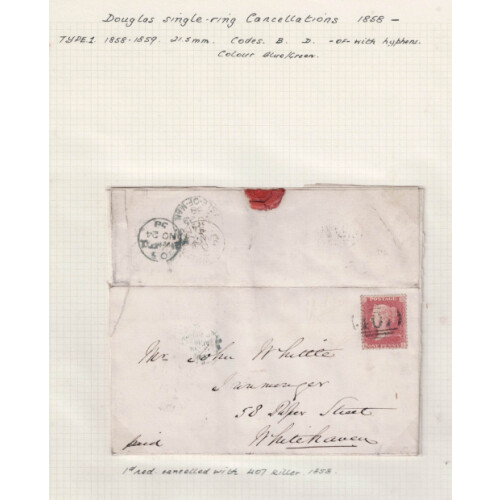 Douglas single-ring Cancellations 1858 -
TYPE 1. 1858-1859. 21.5mm. Codes. B. D. -or- with hyphens.
Colour Blue/Green.
POSTAGE
407
ONE PENNY
Mr John Whittle
Ironmonger
58
Street
Whitehaven
paid
1d red. cancelled with 407 killer. 1858.